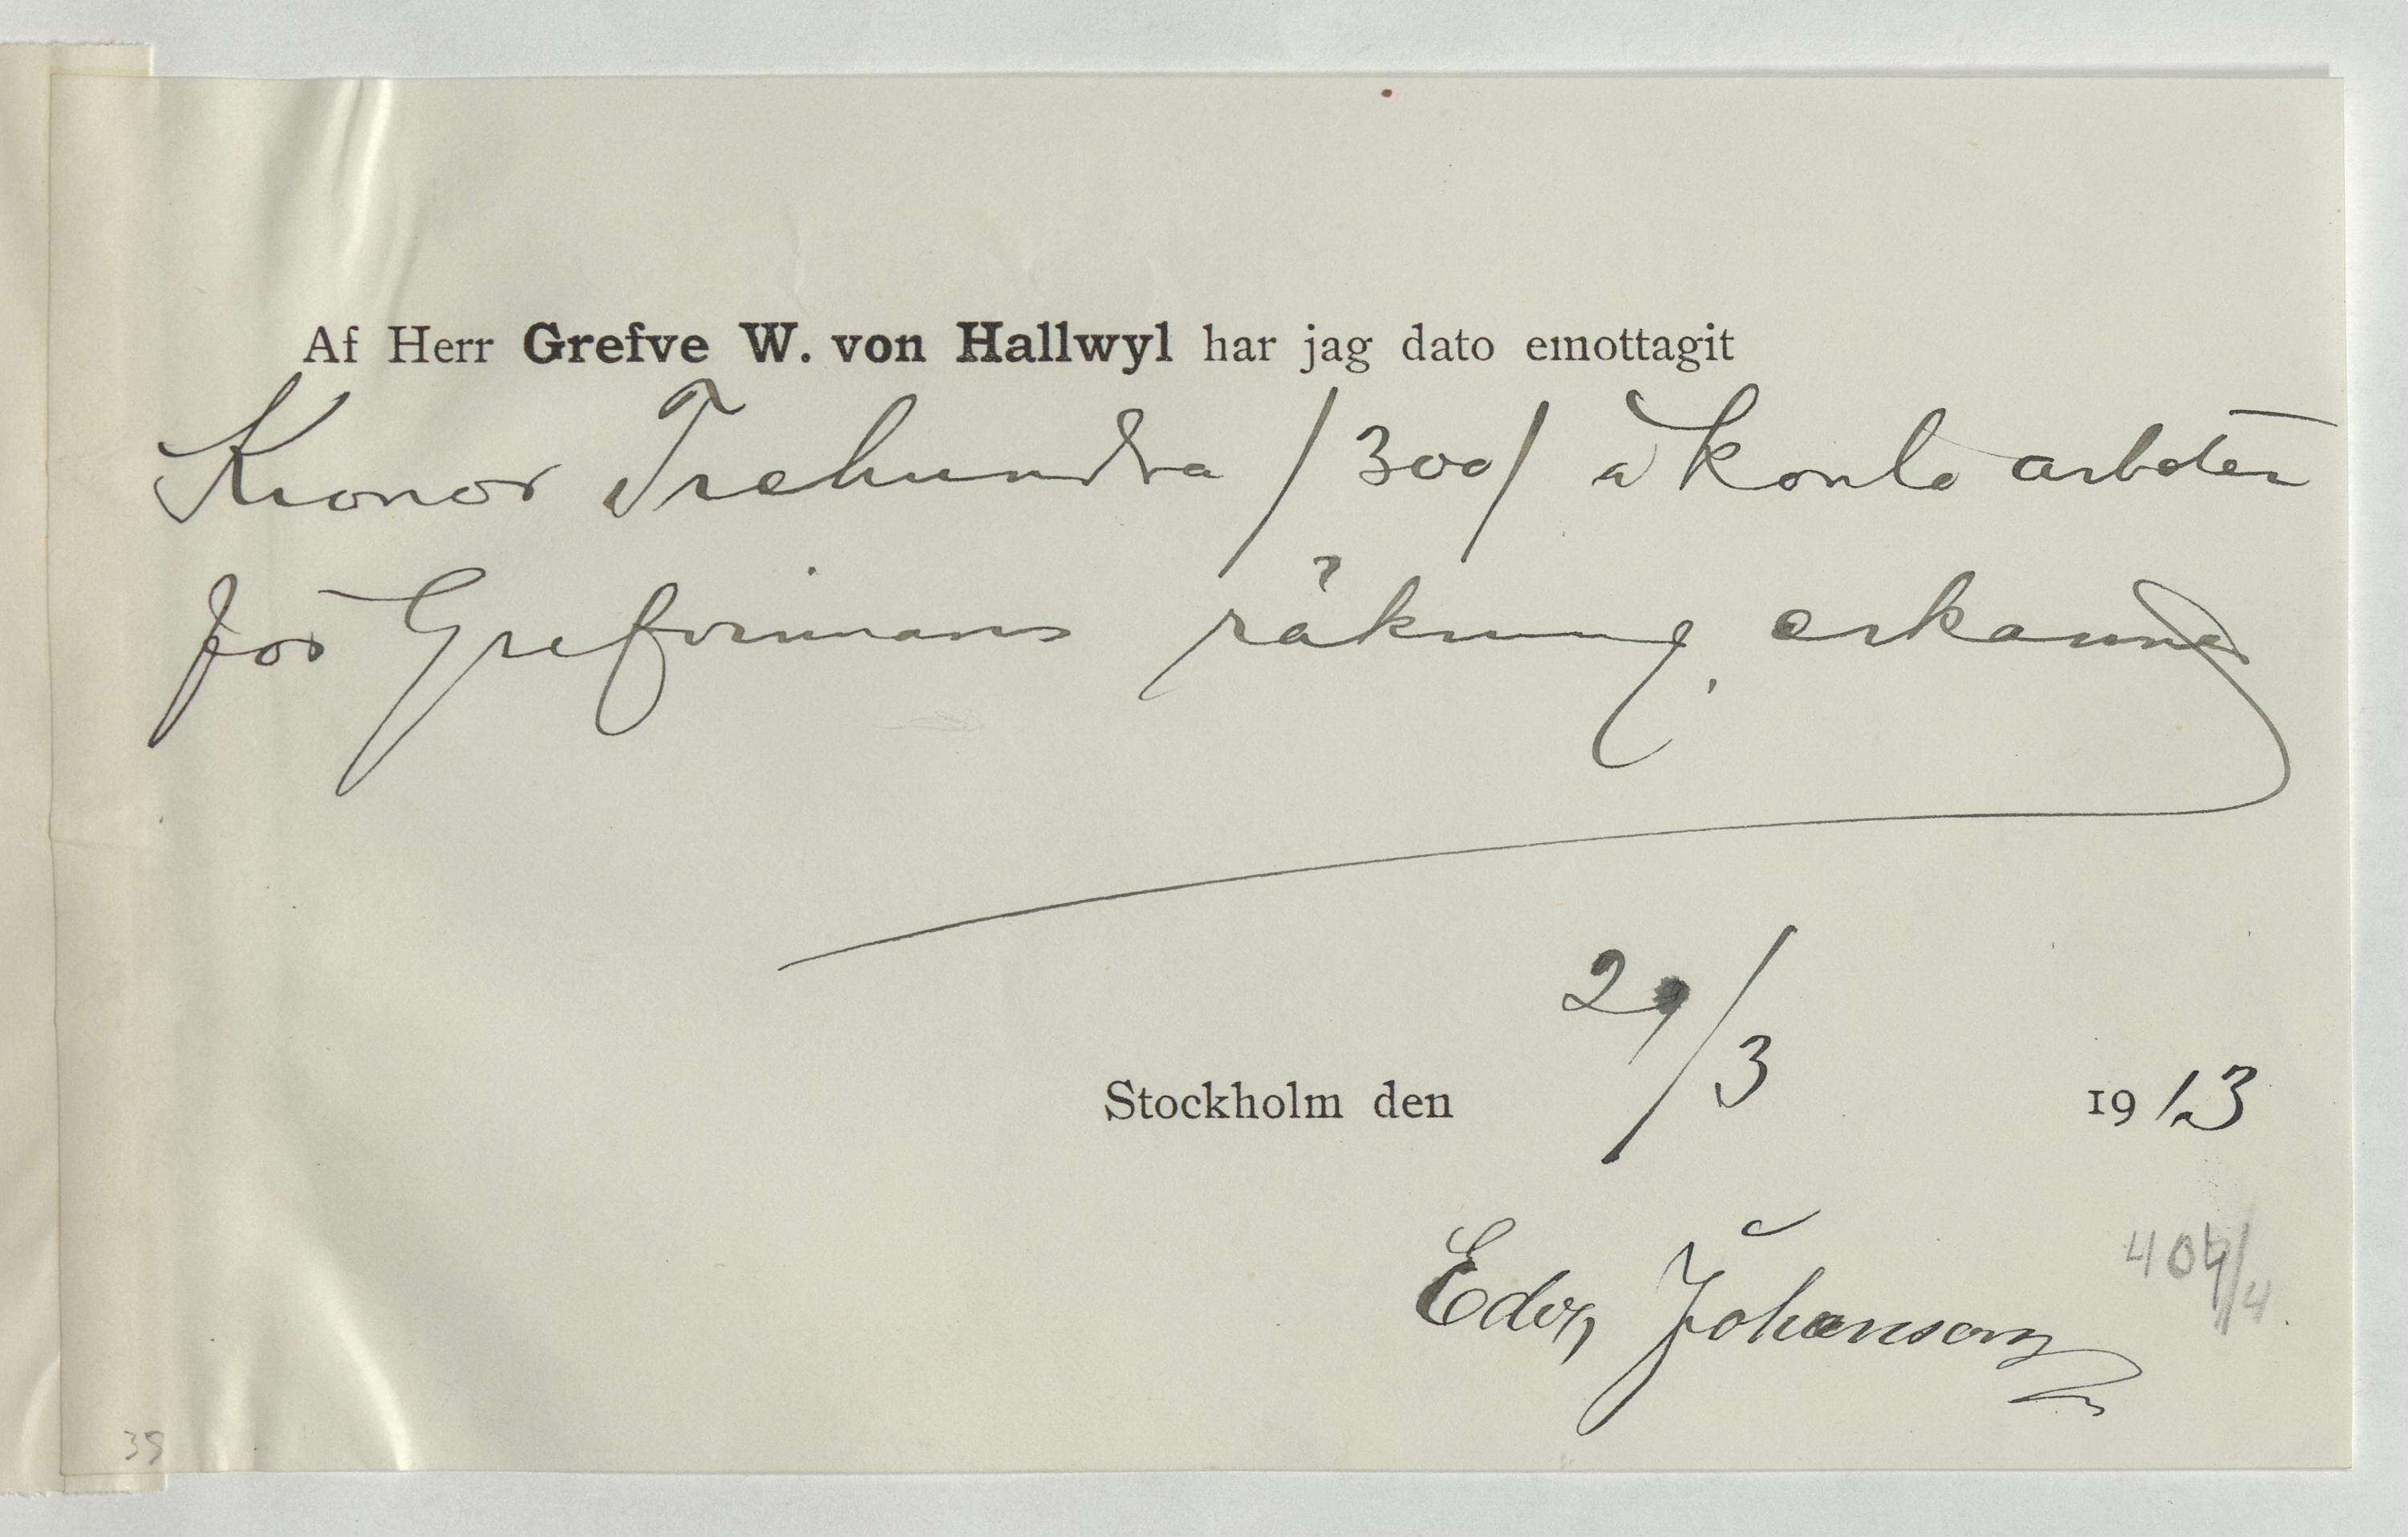 Af Herr Grefve W. von Hallwyl har jag dato emottagit
Kronor Trehundra /300/ a konto arbeten
för Grefvinnans räkning, erkännes
Stockholm den 29/3 1913
Edv, Johanson
404/4
39